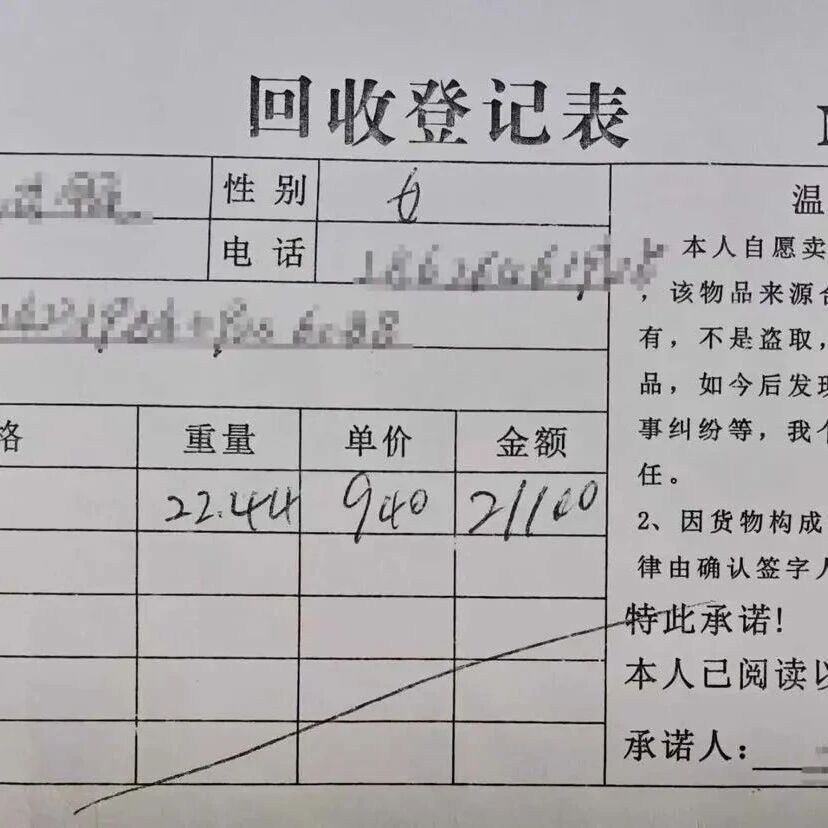 回收登记表
性别 女
电话
格 重量 单价 金额
22.44 940 21100
温
本人自愿卖
，该物品来源合
有，不是盗取，
品，如今后发现
事纠纷等，我个
任。
2、因货物构成
律由确认签字人
特此承诺!
本人已阅读以
承诺人：